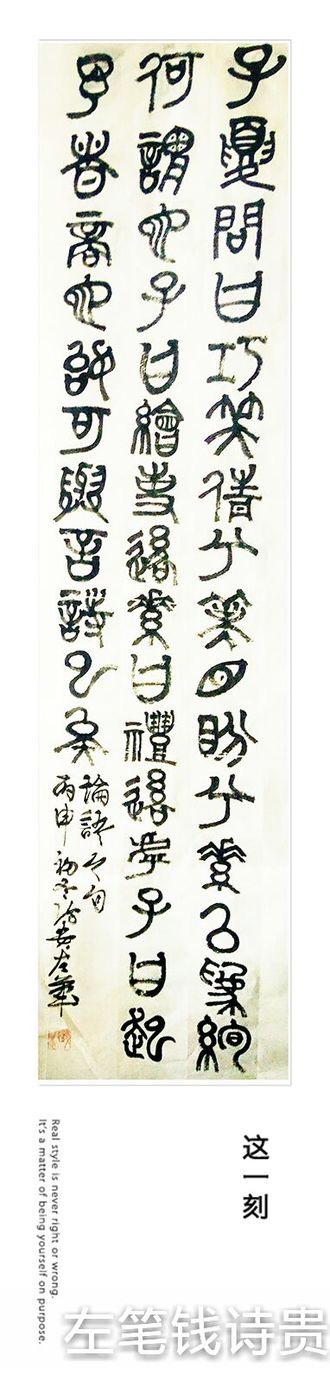 子夏問曰巧笑倩兮美目盼兮素以為絢
何謂也子曰繪事後素曰禮後乎子曰起
予者商也始可與言詩已矣
論語之句
丙申初冬淮安左筆
这一刻
Real style is never right or wrong.
It's a matter of being yourself on purpose.
左笔钱诗贵